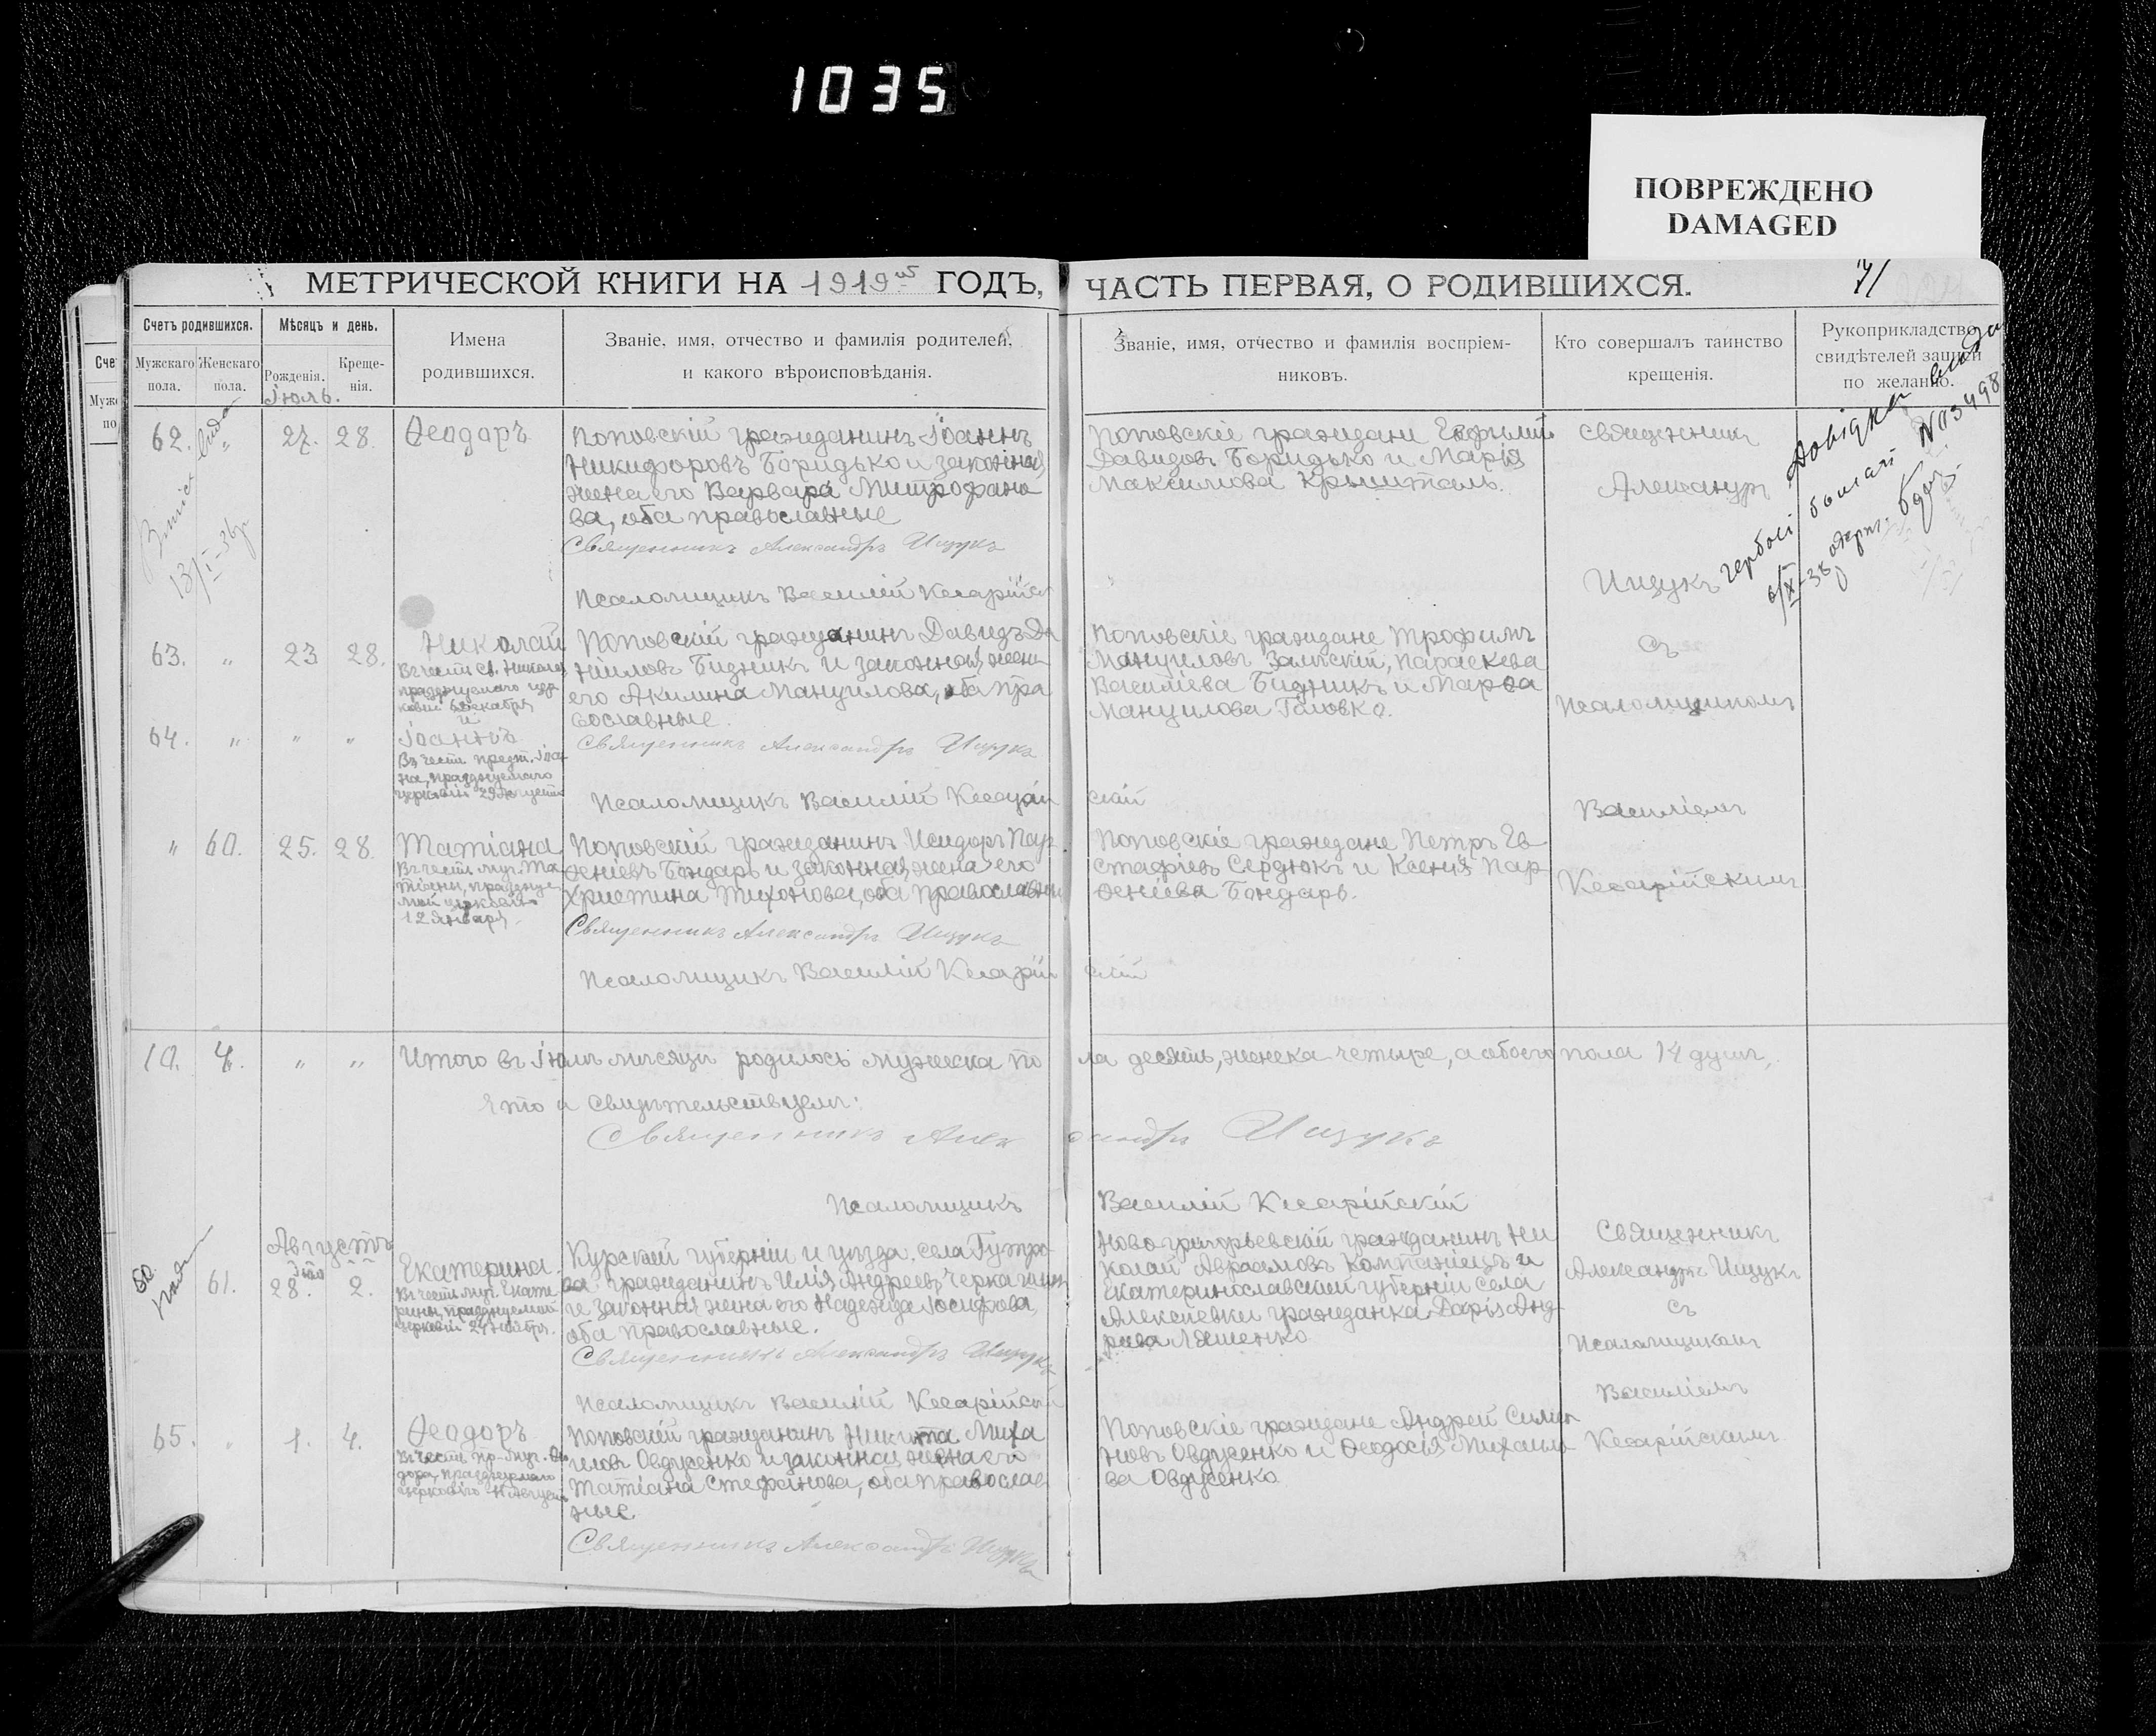 1035
ПОВРЕЖДЕНО
DAMAGED
МЕТРИЧЕСКОЙ КНИГИ НА 1919 ГОДЪ,
ЧАСТЬ ПЕРВАЯ, О РОДИВШИХСЯ.
71
Счетъ родившихся.
Мужскаго пола.
Женскаго пола.
Мѣсяцъ и день.
Рожденія.
Креще-
нія.
Имена
родившихся.
Званіе, имя, отчество и фамилія родителей,
и какого вѣроисповѣданія.
Званіе, имя, отчество и фамилія воспріем-
никовъ.
Кто совершалъ таинство
крещенія.
Рукоприкладство
свидѣтелей записи
по желанію.
Іюль.
62. " 27. 28. Ѳеодоръ
Поповскій гражданинъ Іоаннъ
Никифоровъ Боридько и законная
жена его Варвара Митрофано
ва, оба православные
Священникъ Александръ Ищукъ
Псаломщикъ Василій Кесарійск
Поповскіе граждане Евфимій
Давидовъ Боридько и Марія
Максимова Крышталь.
Священникъ
Александръ
Ищукъ
13/I-36
№ 3498
63. " 23 28. Николай
В честь св. Николая
празднуемого цер
ковію 6 декабря
и
Поповскій гражданинъ Давидъ Да
ниловъ Бидникъ и законная жена
его Акилина Мануилова, оба пра
вославные.
Священникъ Александръ Ищукъ
Поповскіе граждане Трофимъ
Мануиловъ Залѣскій, Параскева
Василіева Бидникъ и Марѳа
Мануилова Головко.
съ
Псаломщикомъ
64. " " " Іоаннъ
Въ честь предт. Іоан
на, празднуемаго
церковію 29 Августа
Псаломщикъ Василій Кесарій скій
Василіемъ
" 60. 25. 28. Татіана
В честь муч. Та
тіаны, празднуе
мой церковію
12 Января.
Поповскій гражданинъ Исидоръ Пар
ѳеніевъ Бондарь и законная жена его
Христина Тихонова, оба православны
Священникъ Александръ Ищукъ
Псаломщикъ Василій Кесарій скій
Поповскіе граждане Петръ Ев
стафіевъ Сердюкъ и Ксенія Пар
ѳеніева Бондарь.
Кесарійскимъ
10. 4. " " Итого въ Іюлѣ мѣсяцѣ родилось мужеска по ла десять, женска четыре, а обоего пола 14 душъ,
что и свидѣтельствуемъ:
Священникъ Алек сандръ Ищукъ
Псаломщикъ Василій Кесарійскій
Августъ
61. 28. 2. Екатерина
В честь муч. Екате
рины, празднуемой
церковію 24 Ноября.
Курской губерніи и уѣзда, села Гутро
ва гражданинъ Илія Андреевъ Черкашинъ
и законная жена его Надежда Іосифова,
оба православные.
Священникъ Александръ Ищукъ
Псаломщикъ Василій Кесарійскій
Новогригорьевскій гражданинъ Ни
колай Авраамовъ Компаніецъ и
Екатеринославской губерніи села
Алексѣевки гражданка Дарія Анд
реева Ляшенко
Священникъ
Александръ Ищукъ
съ
Псаломщикомъ
Василіемъ
Кесарійскимъ
65. " 1. 4. Ѳеодоръ
Поповскій гражданинъ Никита Миха
иловъ Овдусенко и законная жена его
Татіана Стефанова, оба православ
ные
Священникъ Александръ Ищукъ
Поповскіе граждане Андрей Симео
новъ Овдусенко и Ѳеодосія Михаило
ва Овдусенко